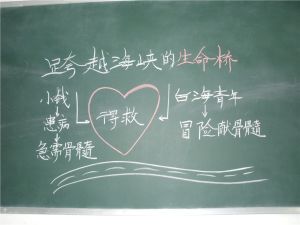 跨越海峡的生命桥
小钱
患病
急需骨髓
得救
青年
冒险献骨髓